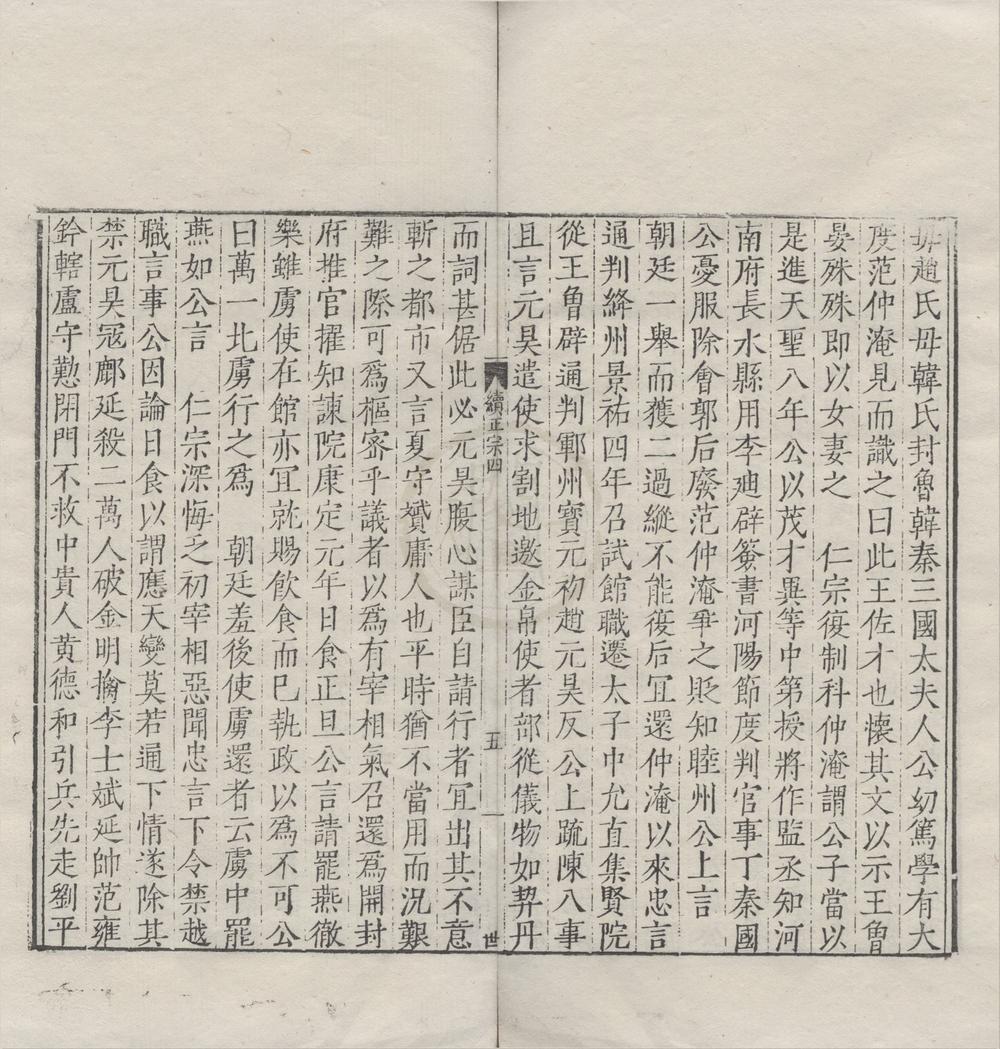 毋趙氏毋韓氏封魯韓秦三國太夫人公幼篤學有大
度范仲淹見而識之曰此王佐才也懷其文以示王魯
晏殊殊即以女妻之　仁宗復制科仲淹謂公子當以
是進天聖八年公以茂才異等中第授將作監丞知河
南府長水縣用李廸辟簽書河陽節度判官事丁秦國
公憂服除會郭后廢范仲淹爭之貶知睦州公上言
朝廷一舉而獲二過縱不能復后冝還仲淹以來忠言
通判絳州景祐四年召試館職遷太子中允直集賢院
從王魯辟通判鄆州寶元初趙元昊反公上䟽陳八事
且言元昊遣使求割地邀金帛使者部從儀物如契丹
續正宗四
五
世
而詞甚倨此必元昊腹心謀臣自請行者冝出其不意
斬之都市又言夏守贇庸人也平時猶不當用而況艱
難之際可爲樞宻乎議者以爲有宰相氣召還爲開封
府推官擢知諫院康定元年日食正旦公言請罷燕徹
樂雖虜使在館亦冝就賜飲食而巳執政以爲不可公
曰萬一北虜行之爲　朝廷羞後使虜還者云虜中罷
燕如公言　仁宗深悔之初宰相惡聞忠言下令禁越
職言事公因論日食以謂應天變莫若通下情遂除其
禁元昊冦鄜延殺二萬人破金明擒李士斌延帥范雍
鈐轄盧守懃閉門不救中貴人黄德和引兵先走劉平